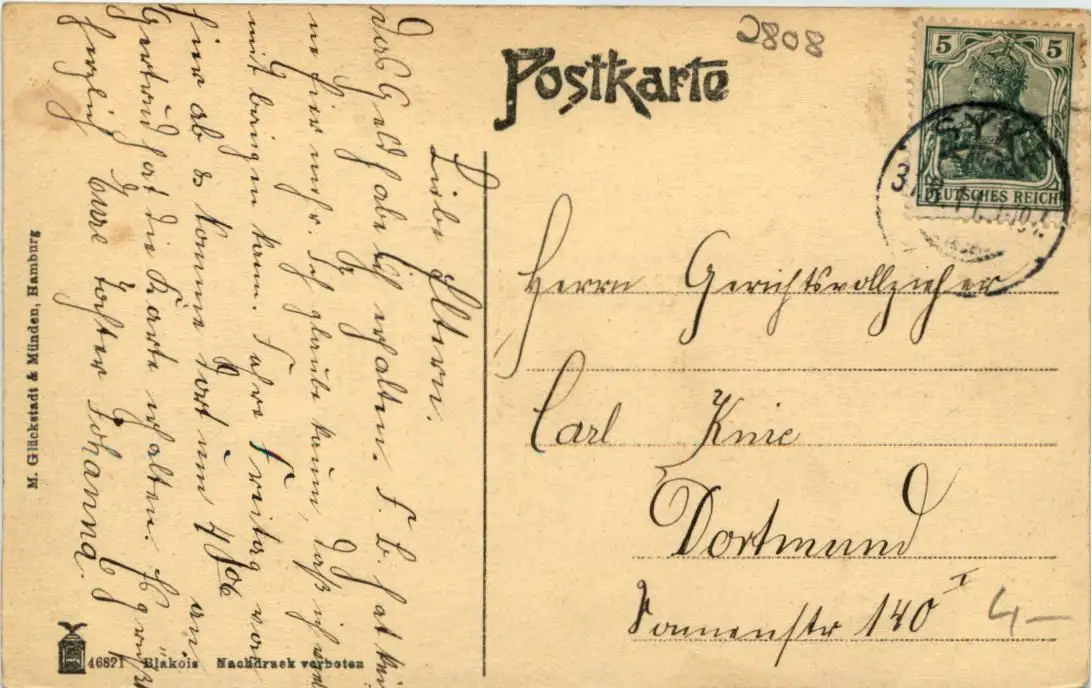 2808
Postkarte
5 5
DEUTSCHES REICH
SYKE
Liebe Eltern.
Das Geld habe ich erhalten. F. L. hat kei
ne hier mehr. Ich glaube kaum, daß ich
mit bringen kann. Fahre Freitag von
hier ab & komme dort um 4 Uhr an.
Gertrud hat die Karte erhalten. Es grüßt
herzlich Eure Tochter Johanna.
Herrn Gerichtsvollzieher
Carl Knie
Dortmund
Sonnenstr 140 I
4-
M. Glückstadt & Münden, Hamburg
46821 Bläkois Nachdruck verboten